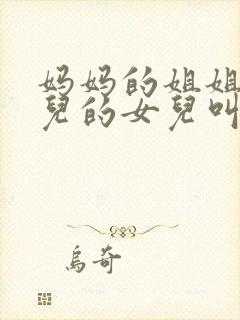 妈妈的姐姐
兒的女兒叫
烏奇